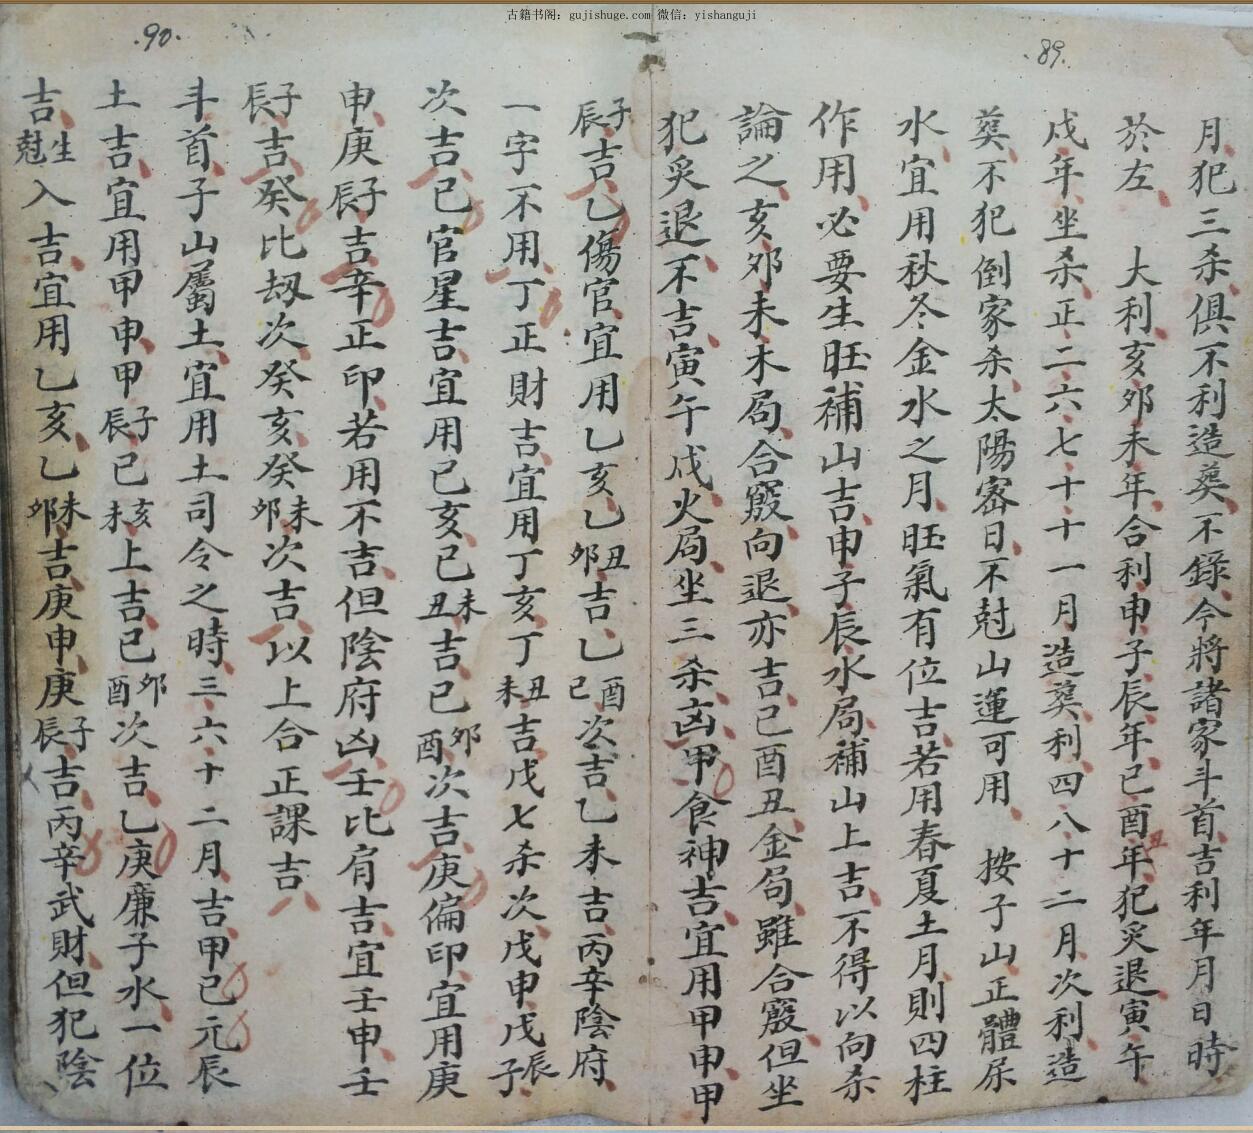 古籍书阁：gujishuge.com 微信：yishanguji
.89.
月犯三杀俱不利造葬不錄今將諸家斗首吉利年月日時
於左　大利亥夘未年合利申子辰年已酉丑年犯災退寅午
戌年坐杀正二六七十十一月造葬利四八十二月次利造
葬不犯倒家杀太陽宻日不尅山運可用　按子山正體属
水宜用秋冬金水之月旺氣有位吉若用春夏土月則四柱
作用必要生旺補山吉申子辰水局補山上吉不得以向杀
論之亥夘未木局合竅向退亦吉已酉丑金局雖合竅但坐
犯災退不吉寅午戌火局坐三杀凶甲食神吉宜用甲申甲
.90.
子辰吉乙傷官宜用乙亥乙丑夘吉乙酉己次吉乙未吉丙辛陰府
一字不用丁正財吉宜用丁亥丁丑未吉戊七杀次戊申戊辰子
次吉已官星吉宜用已亥已未丑吉已夘酉次吉庚偏印宜用庚
申庚子辰吉辛正印若用不吉但陰府凶壬比肩吉宜壬申壬
子辰吉癸比刼次癸亥癸未夘次吉以上合正課吉
斗首子山屬土宜用土司令之時三六十二月吉甲已元辰
土吉宜用甲申甲子辰已亥未上吉已夘酉次吉乙庚廉子水一位
吉生尅入吉宜用乙亥乙未夘吉庚申庚子辰吉丙辛武財但犯陰